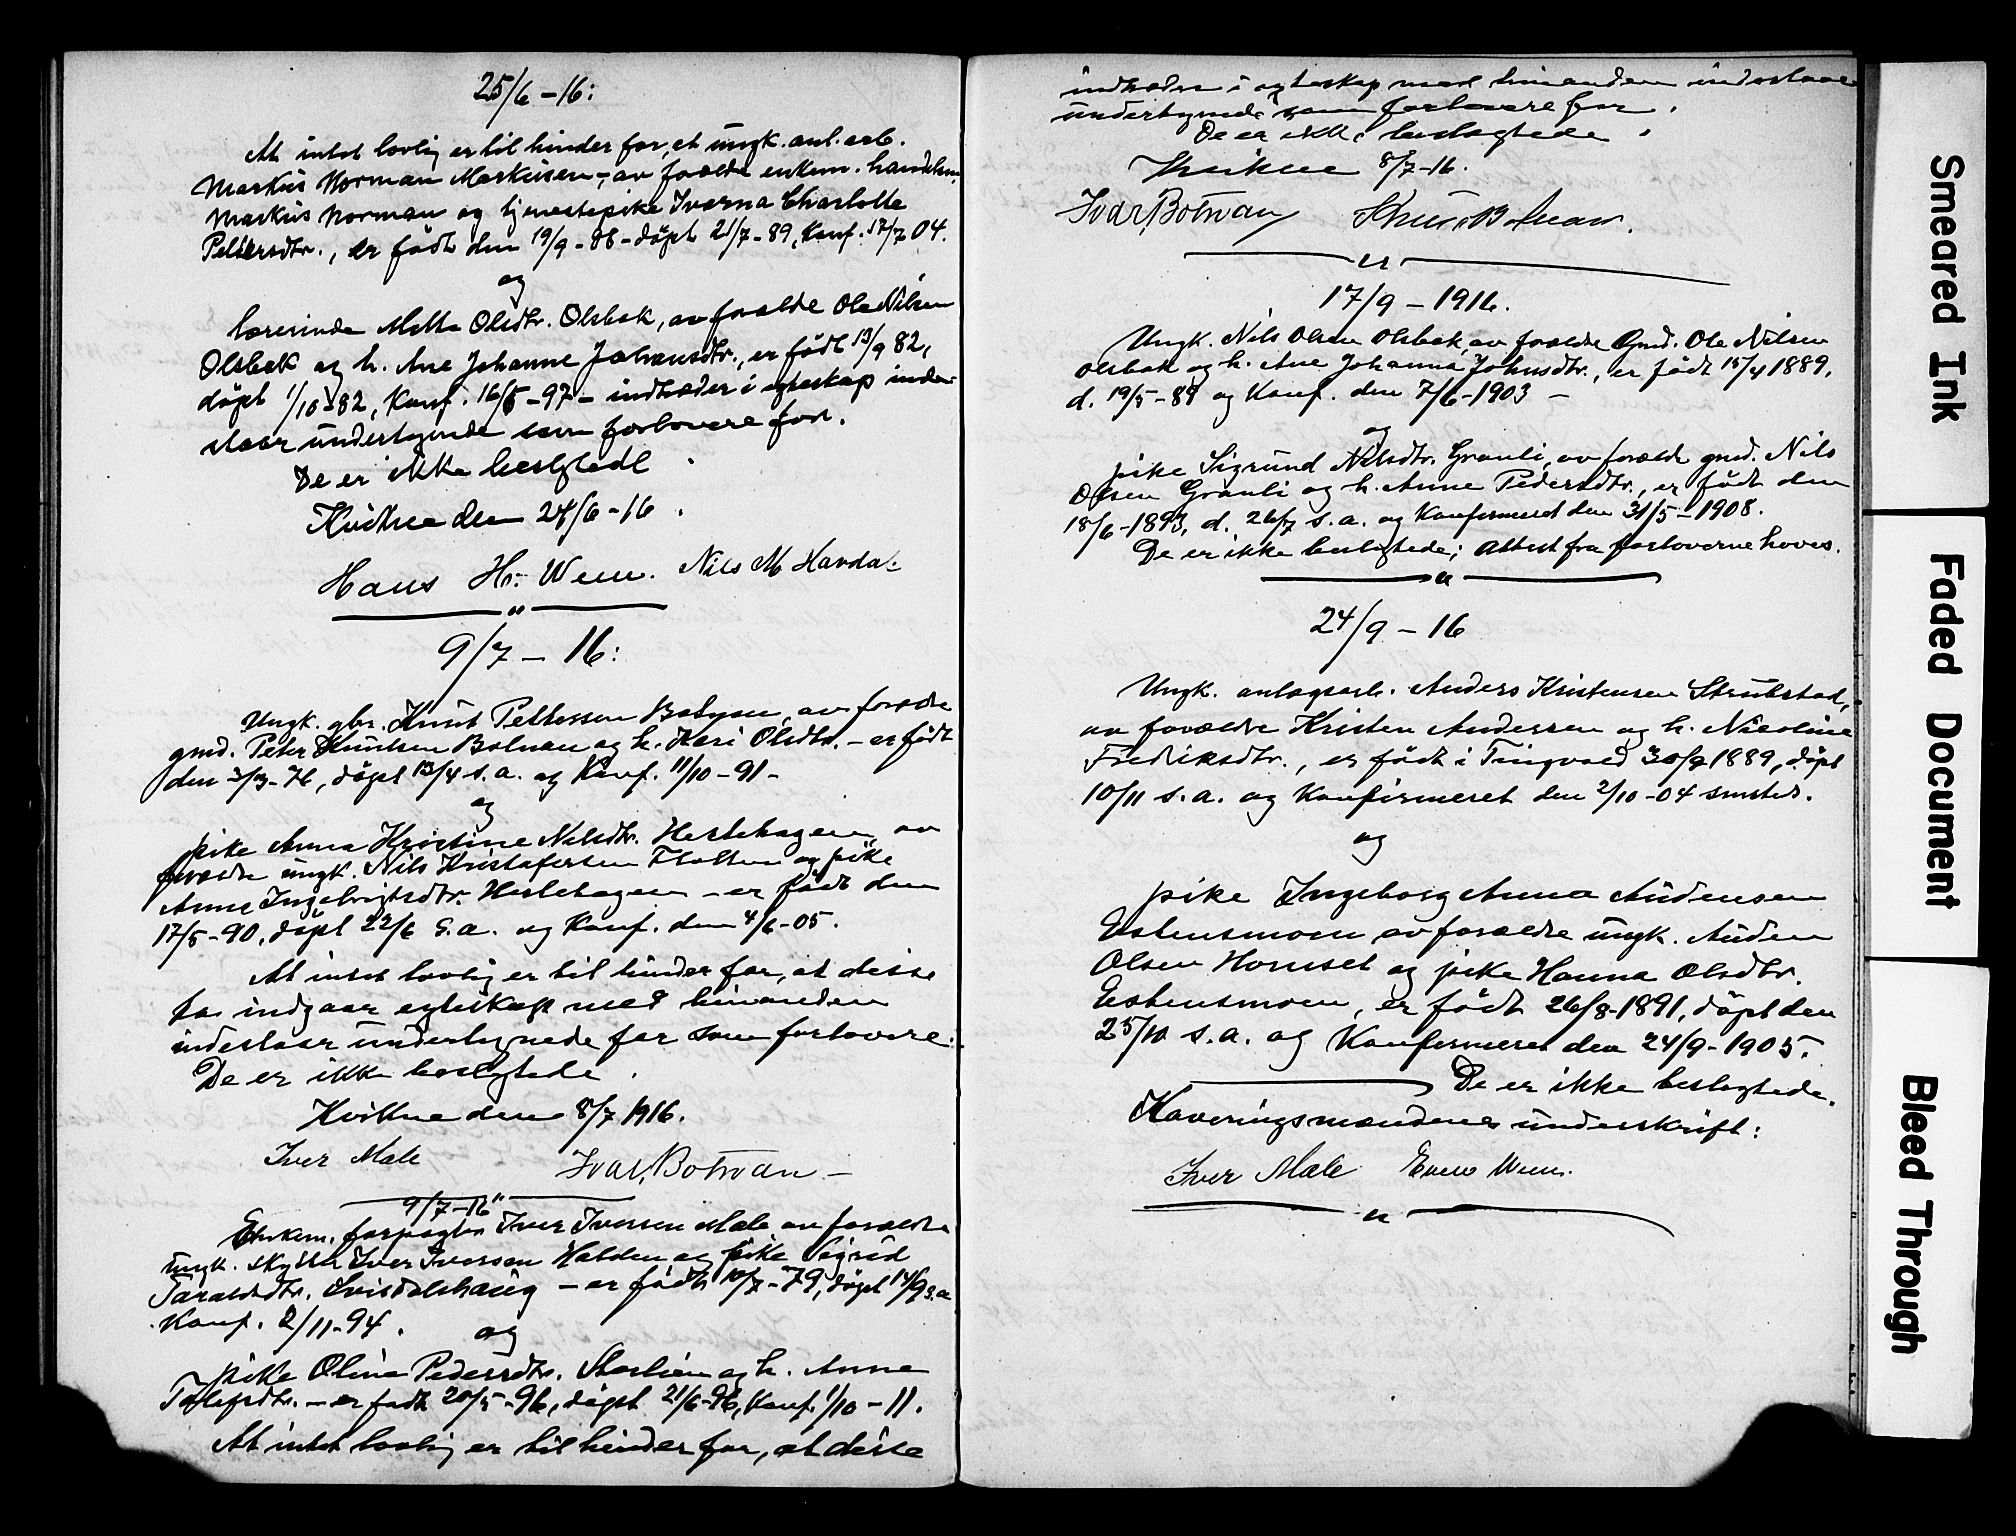 25/6 – 16:
At intet lovlig er til hinder for, at ungk. anl. arb.
Markus Norman Markussen, av forældre enkem. handelsm.
Markus Norman og tjenestepike Ivarna Charlotte
Pettersdtr., er født den 19/9 - 88 - døpt 21/7 - 89, Konf. 17/7 04.
og
lærerinde Mette Olsdtr. Olsbak, av forældre Ole Nilsen
Olsbak og h. Ane Johanne Johansdtr., er født 13/9 82,
døpt 1/10 - 82, Konf. 16/5 - 97 - indtræder i egteskap inde-
staar undertegnede som forlovere for.
De er ikke beslegtede
Kvikne den 24/6 - 16.
Hans H. Wem. Nils M Havdal
"
9/7 – 16:
Ungk. gbr. Knut Pettersen, av forældre
gmd. Peter Knutsen Botnan og h. Kari Olsdtr. - er født
den 3/3 - 76, døpt 13/4 s.a. og Konf. 11/10 - 91 -
og
pike Anna Kristine Nilsdtr. Hestehagen, av
forældre ungk. Nils Kristofersen Flatten og pike
Anne Ingebrigtsdtr. Hestehagen - er født den
17/5 - 90, døpt 22/6 s.a. og Konf. den 4/6 - 05.
At intet lovlig er til hinder for, at disse
to indgaar egteskap med hinanden
indestaar undertegnede for som forlovere.
De er ikke beslegtede.
Kvikne den 8/7 1916.
Iver Mæle Ivar Botnan –
9/7 - 16 "
Enkem. forpagter Iver Iversen Mæle av forældre
ungk. Iver Iversen Halden og pike Sigrid
Taraldsdtr. - er født 10/7 - 79, døpt 14/9 s.a
Konf. 2/11 - 94.
og
pike Oline Pedersdtr. Storlien og h. Anne
- er født 20/5 - 96, døpt 21/6 - 96, Konf. 1/10 - 11.
At intet lovlig er til hinder for, at disse
indtræder i egteskap med hinanden indestaar
undertegnede som forlovere for.
De er ikke beslegtede.
Kvikne 8/7 - 16.
Ivar Botnan Knut Botnan.
"
17/9 – 1916.
Ungk. Nils Olsen Olsbak, av forældre Gmd. Ole Nilsen
Olsbak og h. Ane Johanna Johnsdtr., er født 15/4 1889,
d. 19/5 - 89 og Konf. den 7/6 - 1903 –
og
pike Sigrund Nilsdtr. Granli, av forældre gmd. Nils
Olsen Granli og h. Anne Pedersdtr., er født den
18/6 - 1893, d. 26/7 s.a. og Konfirmeret den 31/5 - 1908.
De er ikke beslegtede; Attest fra forloverne haves.
"
24/9 – 16
Ungk. anlægsarb. Anders Kristensen Strubstad,
av forældre Kristen Andersen og h. Nicoline
Fredriksdtr., er født i Tingvold 30/9 1889, døpt
10/11 s.a. og Konfirmeret den 2/10 - 04 smsteds.
og
pike Ingeborg Anna Audensen
Estensmoen av forældre ungk. Auden
Olsen Hornset og pike Hanna Olsdtr.
Estensmoen, er født 26/8 - 1891, døpt den
25/10 s.a. og Konfirmeret den 24/9 - 1905.
De er ikke beslegtede.
Kaveringsmændenes underskrift:
Iver Mæle Even Wem.
"
Smeared Ink
Faded Document
Bleed Through